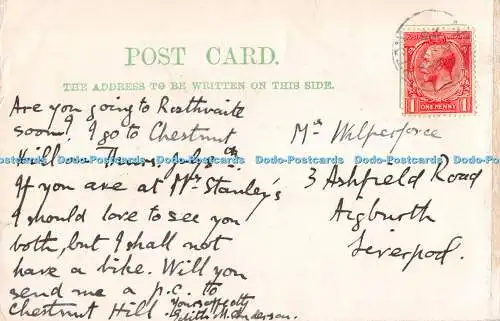 POST CARD.
THE ADDRESS TO BE WRITTEN ON THIS SIDE.
ONE PENNY
1 1
Are you going to Rosthwaite
soon? I go to Chestnut
Hill on Thurs.
If you are at Mrs Stanley's
I should love to see you
both, but I shall not
have a bike. Will you
send me a p.c. to
Chestnut Hill. Yours affectly
Edith M. Anderson.
Mrs Wilperforce
3 Ashfield Road
Aigburth
Liverpool.
Dodo-Postcards Dodo-Postcards Dodo-Postcards Dodo-Postcards Dodo-Postcards